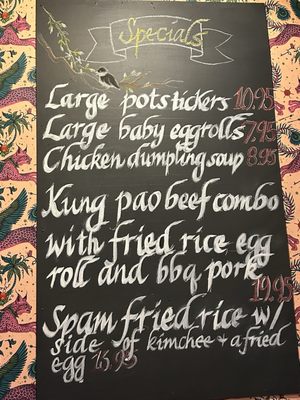 Specials
Large potstickers 10.95
Large baby eggrolls 7.95
Chicken dumpling soup 8.95
Kung pao beef combo
with fried rice egg
roll and bbq pork
19.95
Spam fried rice w/
side of kimchee + a fried
egg 15.95